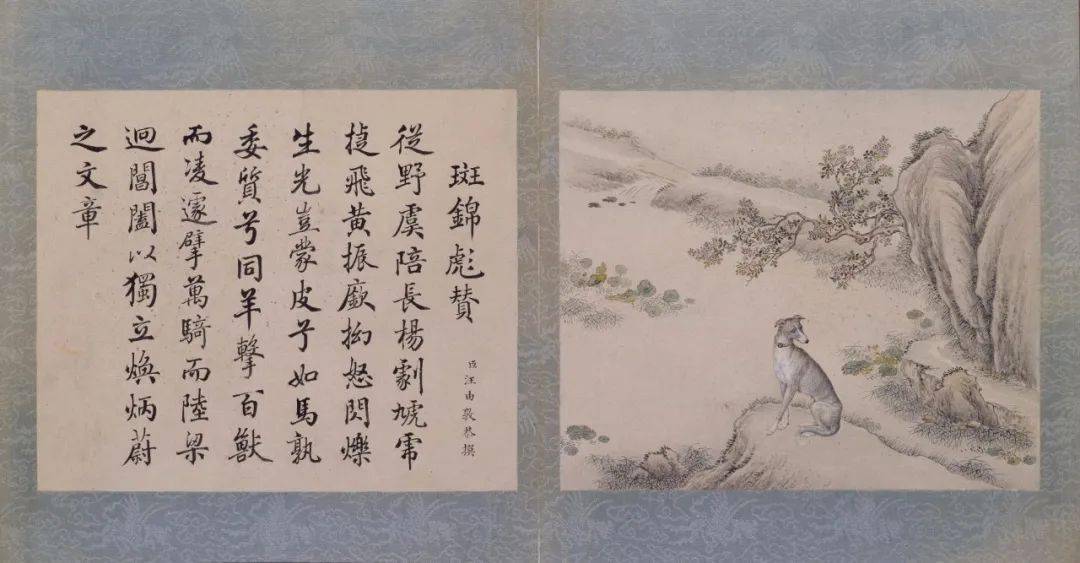 斑錦彪贊
臣汪由敦恭撰
從野虞陪長楊劇虓
捷飛黃振厥拗怒閃爍
生光豈蒙皮兮如馬孰
委質兮同羊擊百獸
而凌遽擘萬騎而陸梁
迥閶闔以獨立煥炳蔚
之文章